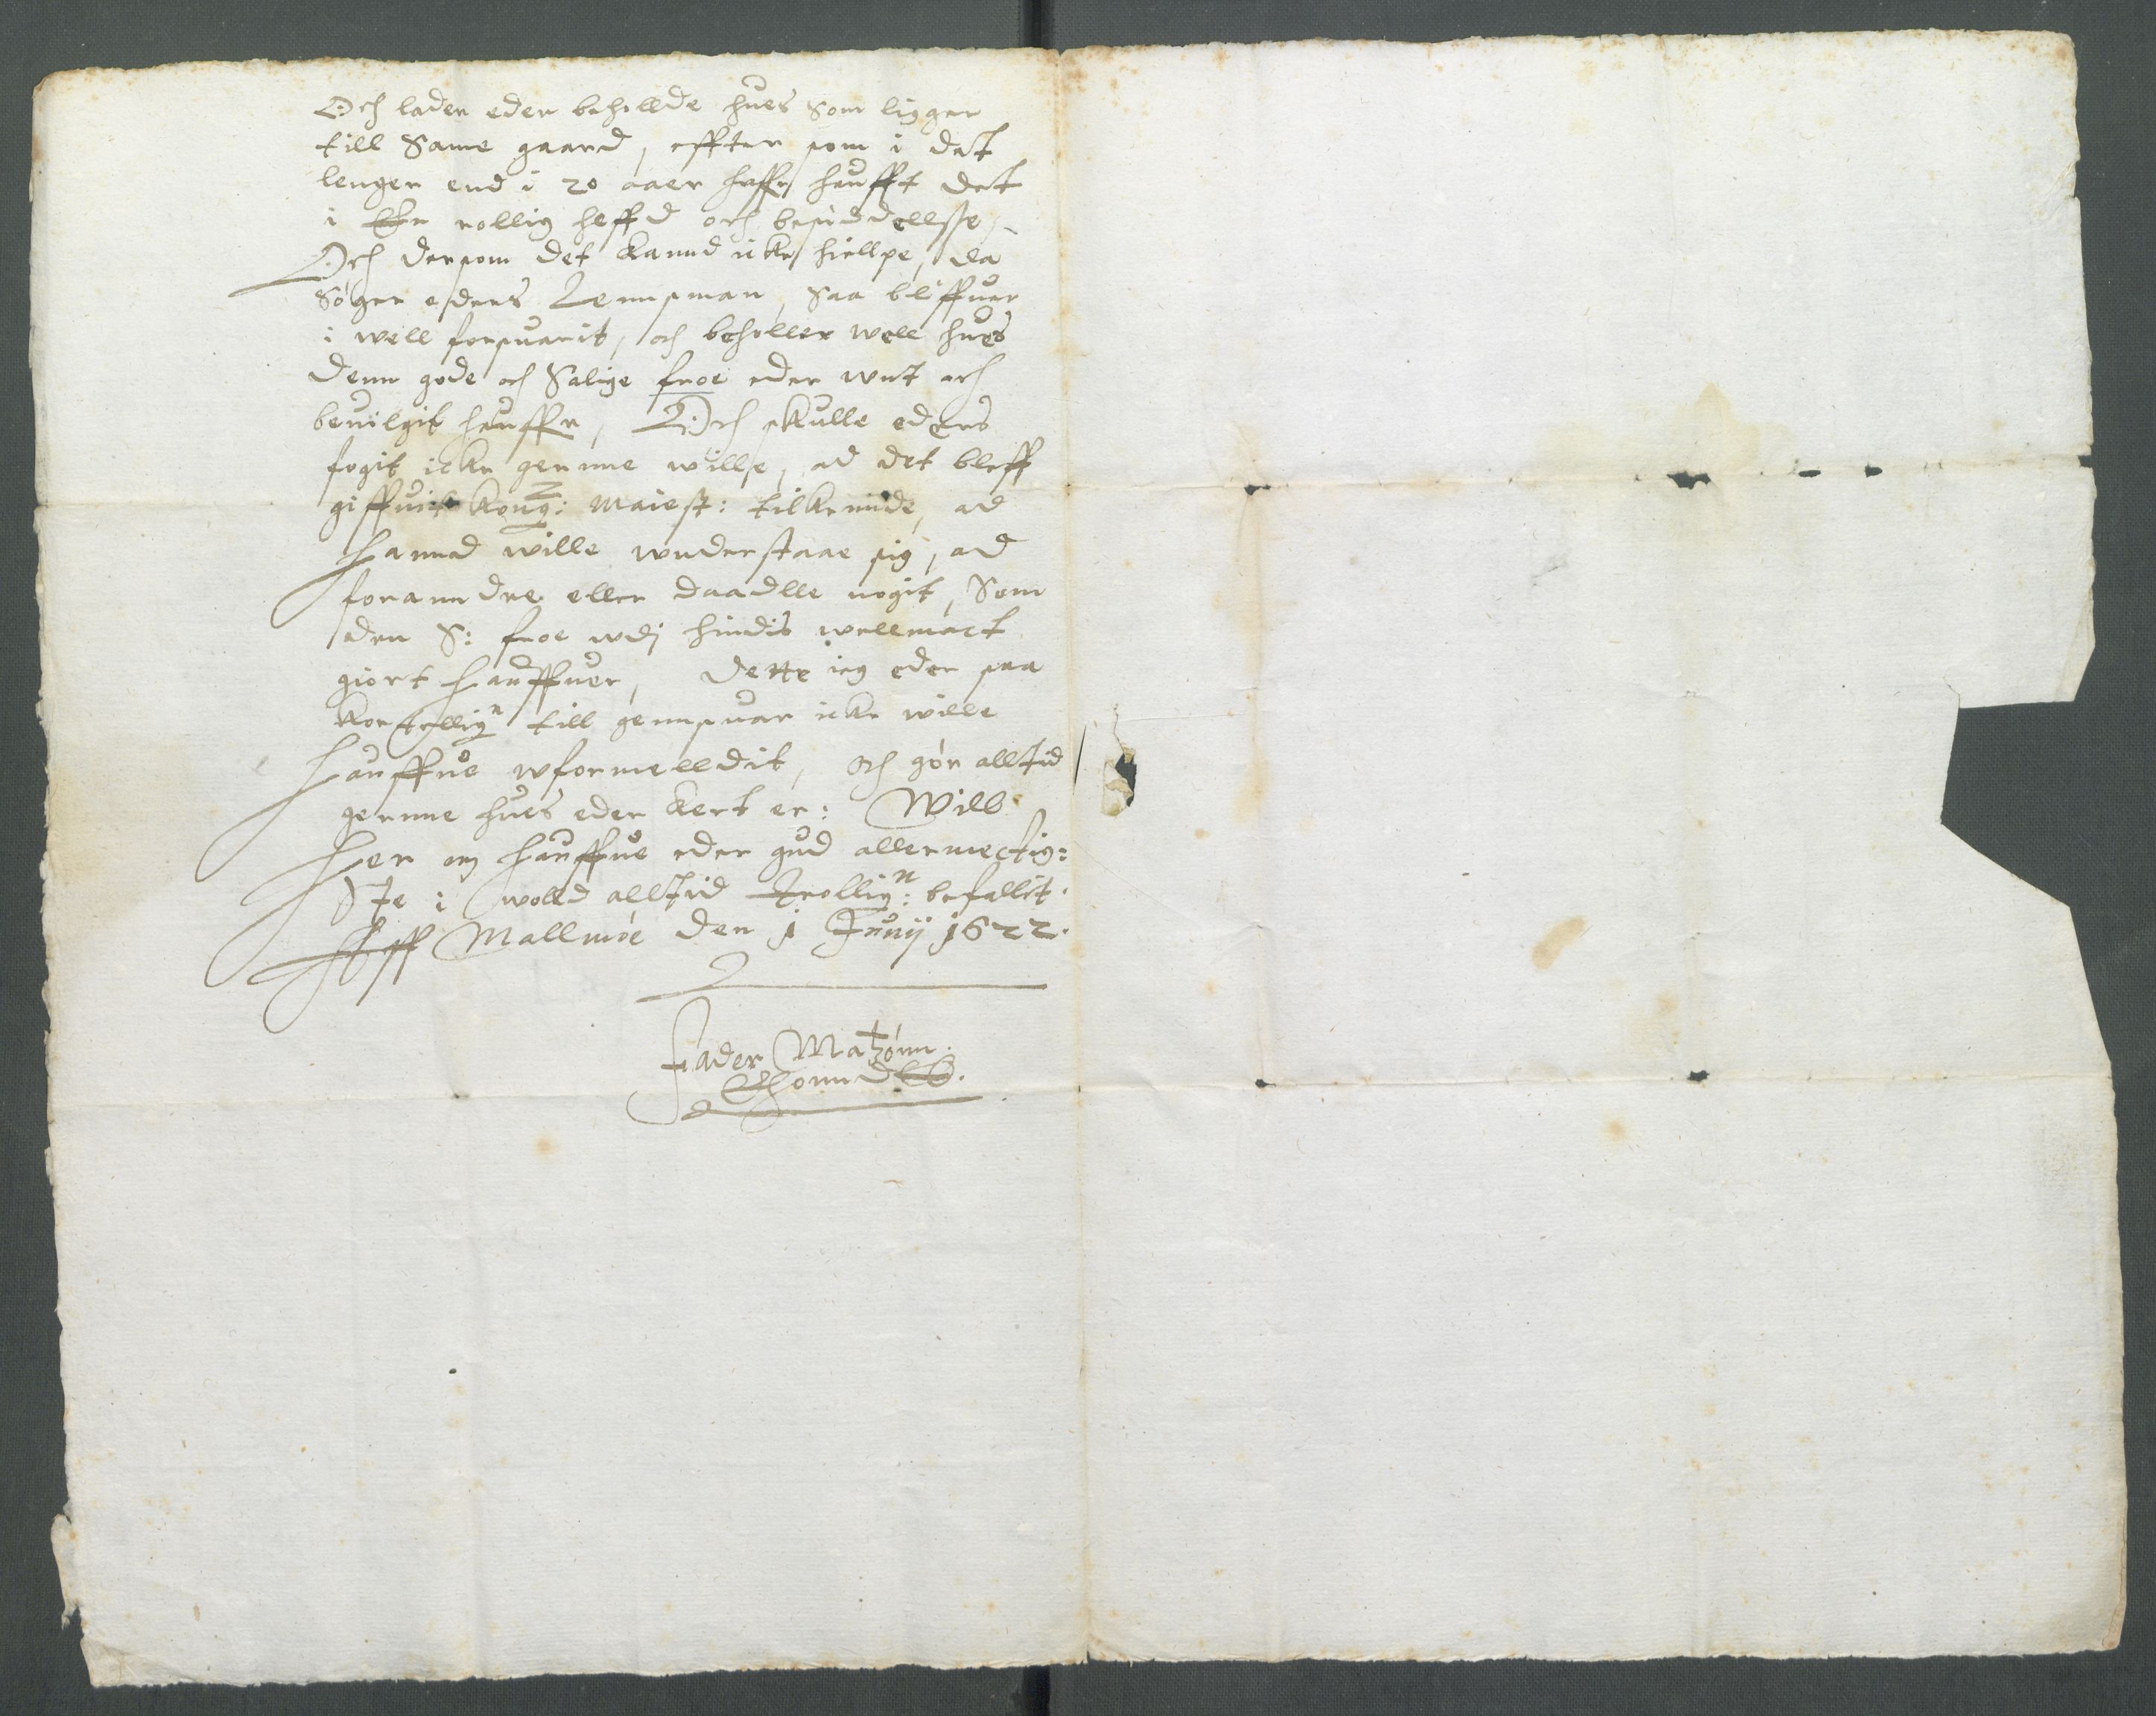 Och lader eder behollde hues Som ligger
till Same gaard, effter som i det
lenger end i 20 aaer haffr haufft det
i En rollig heffd och besiddellsse,
Och dersom det kannd icke hiellpe, da
Søger eders Lennsman, Saa bliffuer
i well forsuarit, och beholler well hues
denn gode och Salige froe eder wnt och
beuilgit hauffr, Och skulle eders
fogit icke gernne wille, ad det bleff
giffuit Kong: Maiest: tilkennde, ad
Hannd wille wnderstaae sig, ad
foranndre eller daadlle nogit, Som
den S: froe wdj hindis wellmact
giort Hauffuer, Dette ieg eder paa
Kortellign till gennsuar icke wille
Hauffue wformelldit, och gør alltid
gernne hues eder kert er: Will
Her om Hauffue eder gud allermectig:
ste i wolld alltiid trollign: befallit.
Aff Mallmøe den 1 Junij 1622.
Fader Matzønn.